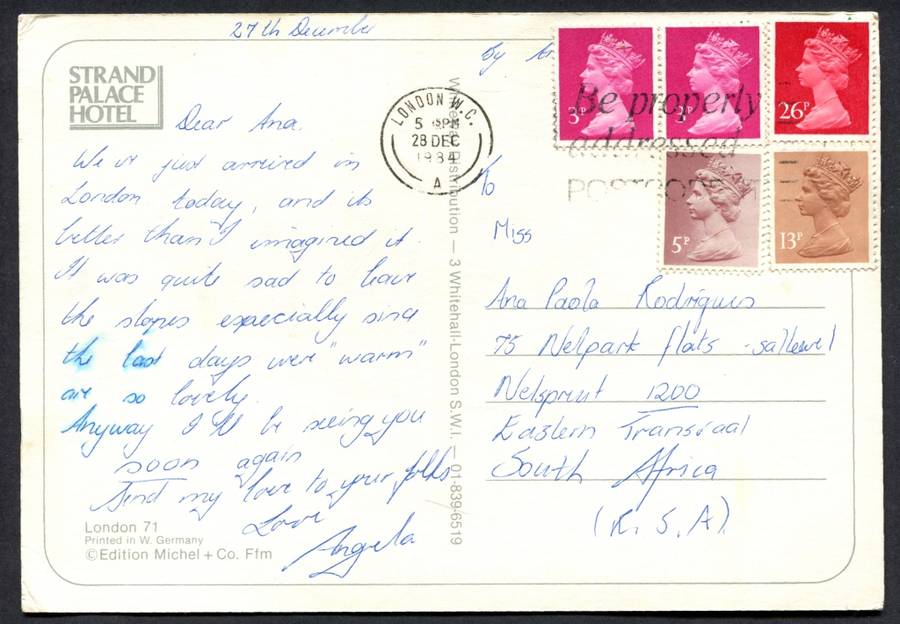 27th December
By Air
STRAND
PALACE
HOTEL
Dear Ana.
We've just arrived in
London today, and its
better than I imagined it.
It was quite sad to leave
the slopes especially since
the last days were "warm"
air so lovely.
Anyway I'll be seeing you
soon again
Send my love to your folks
Love
Angela
London 71
Printed in W. Germany
©Edition Michel + Co. Ffm
Distribution — 3 Whitehall-London S.W.I. — 01-839-6519
LONDON W.C.
5 PM
28 DEC
1984
A
Be properly
addressed
POSTCODE
3P
3P
26P
5P
13P
To
Miss
Ana Paola Rodrigues
75 Nelpark flats
Nelspruit 1200
Eastern Transvaal
South Africa
(R.S.A).